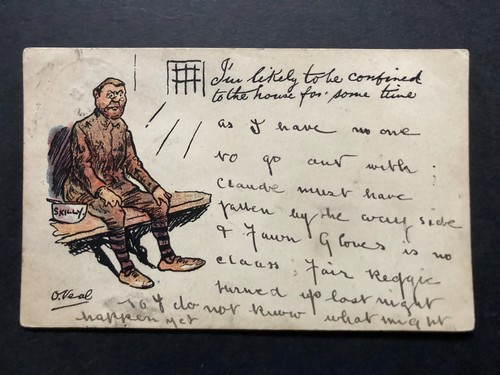 I'm likely to be confined
to the house for some time
as I have no one
to go out with;
Claude must have
fallen by the way side
& Fawn Gloves is no
class; Fair Reggie
turned up last night
so I do not know what might
happen yet
SKILLY.
O'Veal